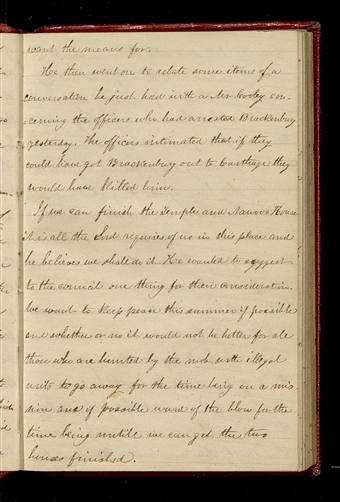 want the means for.
He then went on to relate some items of a
conversation he just had with a Mr Cooley con-
cerning the officers who had arrested Brackenbury
yesterday. The officers intimated that if they
could have got Brackenbury out to Carthage they
would have killed him.
If we can finish the Temple and Nauvoo House
it is all the Lord requires of us in this place and
he believes we shall do it. He wanted to suggest
to the council one thing for their consideration.
We want to keep peace this summer if possible
and whether or no it would not be better for all
those who are hunted by the mob with illegal
writs to go away for the time being on a mis-
sion and if possible ward of the blow for the
time being untill we can get the two
houses finished.